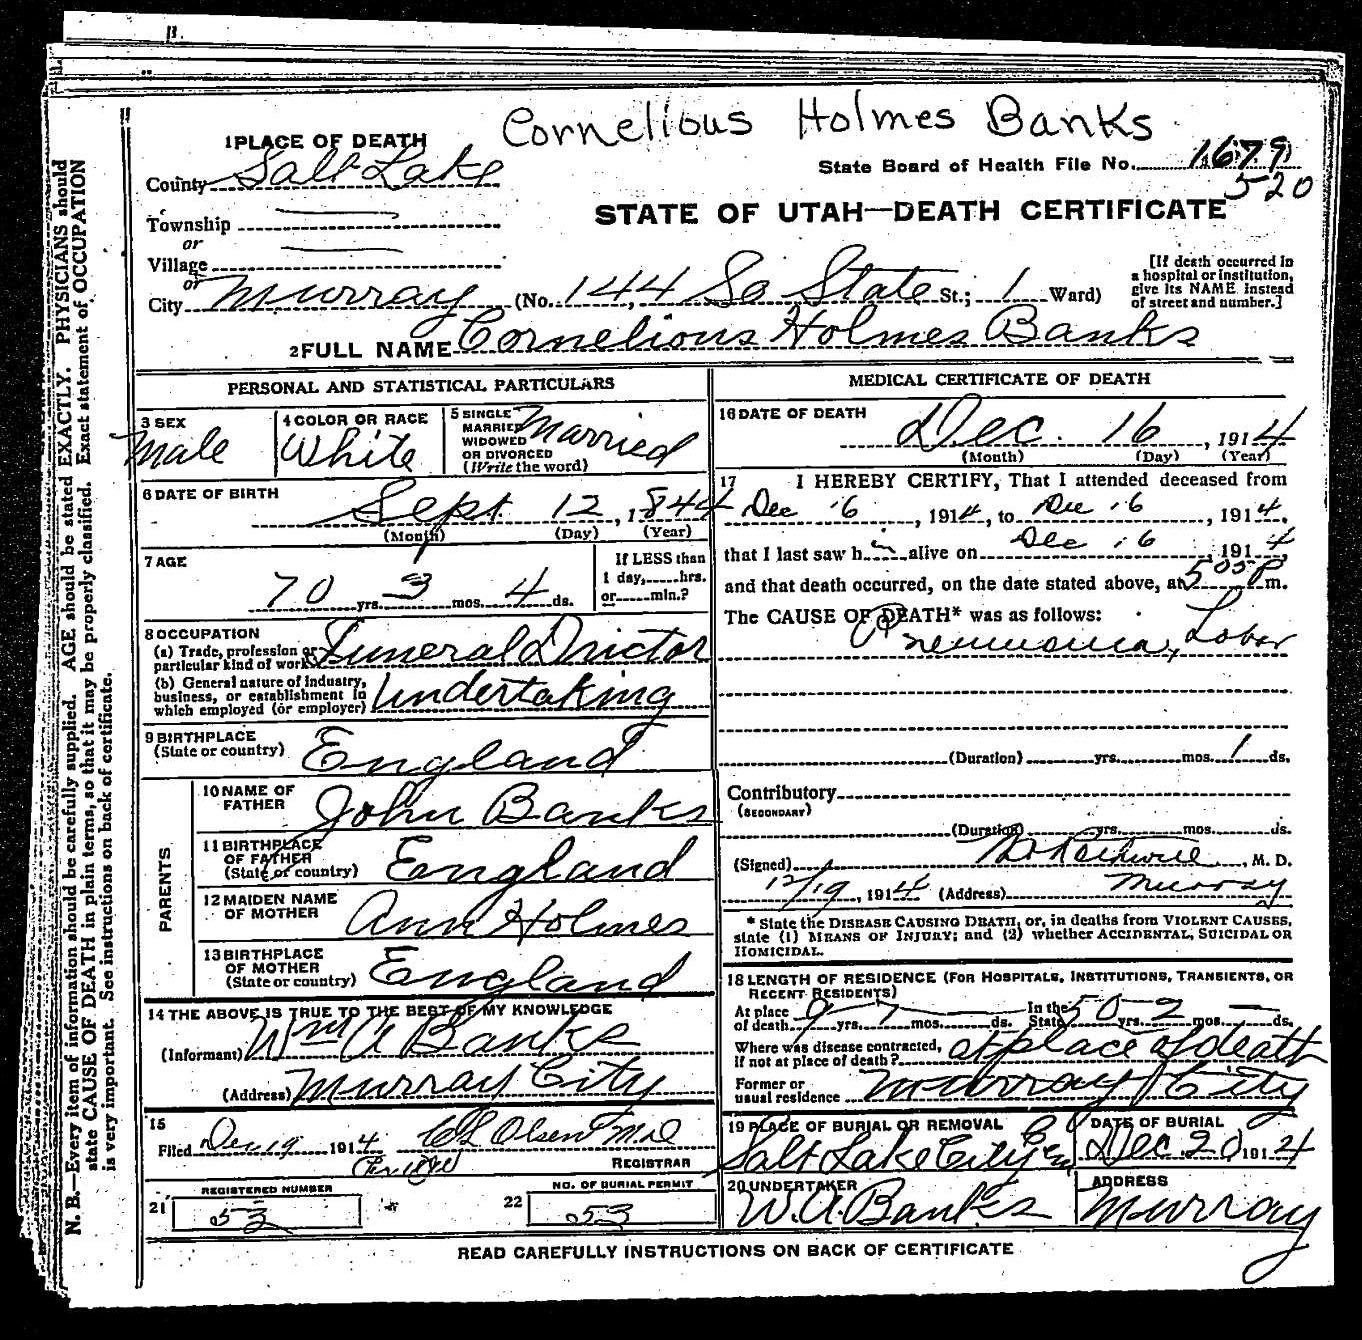 Cornelious Holmes Banks
1 PLACE OF DEATH
County Salt Lake
State Board of Health File No. 1679
520
Township
or
Village
or
STATE OF UTAH—DEATH CERTIFICATE
City Murray (No. 144 So State St.; 1 Ward)
[If death occurred in a hospital or institution, give its NAME instead of street and number.]
2 FULL NAME Cornelious Holmes Banks
PERSONAL AND STATISTICAL PARTICULARS
3 SEX
Male
4 COLOR OR RACE
White
5 SINGLE
MARRIED
WIDOWED
OR DIVORCED
(Write the word)
Married
6 DATE OF BIRTH
Sept 12, 1844
(Month) (Day) (Year)
7 AGE
70 yrs. 3 mos. 4 ds.
If LESS than
1 day,.....hrs.
or.....min.?
8 OCCUPATION
(a) Trade, profession or
particular kind of work Funeral Drictor
(b) General nature of industry,
business, or establishment in
which employed (or employer) Undertaking
9 BIRTHPLACE
(State or country) England
PARENTS
10 NAME OF
FATHER John Banks
11 BIRTHPLACE
OF FATHER
(State or country) England
12 MAIDEN NAME
OF MOTHER Ann Holmes
13 BIRTHPLACE
OF MOTHER
(State or country) England
14 THE ABOVE IS TRUE TO THE BEST OF MY KNOWLEDGE
(Informant) Wm A Banks
(Address) Murray City
15
Filed Dec 19 1914 Olsen M D
REGISTRAR
21 REGISTERED NUMBER
53
22 NO. OF BURIAL PERMIT
53
MEDICAL CERTIFICATE OF DEATH
16 DATE OF DEATH
Dec. 16, 1914
(Month) (Day) (Year)
17 I HEREBY CERTIFY, That I attended deceased from
Dec 16, 1914, to Dec 16, 1914,
that I last saw h im alive on Dec 16, 1914,
and that death occurred, on the date stated above, at 5 05 P m.
The CAUSE OF DEATH* was as follows:
Pneumonia, Lobar
(Duration) yrs. mos. 1 ds.
Contributory
(SECONDARY)
(Duration) yrs. mos. ds.
(Signed) , M. D.
12/19, 1914 (Address) Murray
* State the DISEASE CAUSING DEATH, or, in deaths from VIOLENT CAUSES,
state (1) MEANS OF INJURY; and (2) whether ACCIDENTAL, SUICIDAL OR
HOMICIDAL.
18 LENGTH OF RESIDENCE (FOR HOSPITALS, INSTITUTIONS, TRANSIENTS, OR
RECENT RESIDENTS)
At place
of death 9 yrs. 7 mos. ds. In the
State 50 yrs. 2 mos. — ds.
Where was disease contracted,
if not at place of death? at place of death
Former or
usual residence Murray City
19 PLACE OF BURIAL OR REMOVAL
Salt Lake City Cem
DATE OF BURIAL
Dec 20 1914
20 UNDERTAKER
W. A. Banks
ADDRESS
Murray
READ CAREFULLY INSTRUCTIONS ON BACK OF CERTIFICATE
N. B.—Every item of information should be carefully supplied. AGE should be stated EXACTLY. PHYSICIANS should
state CAUSE OF DEATH in plain terms, so that it may be properly classified. Exact statement of OCCUPATION
is very important. See instructions on back of certificate.